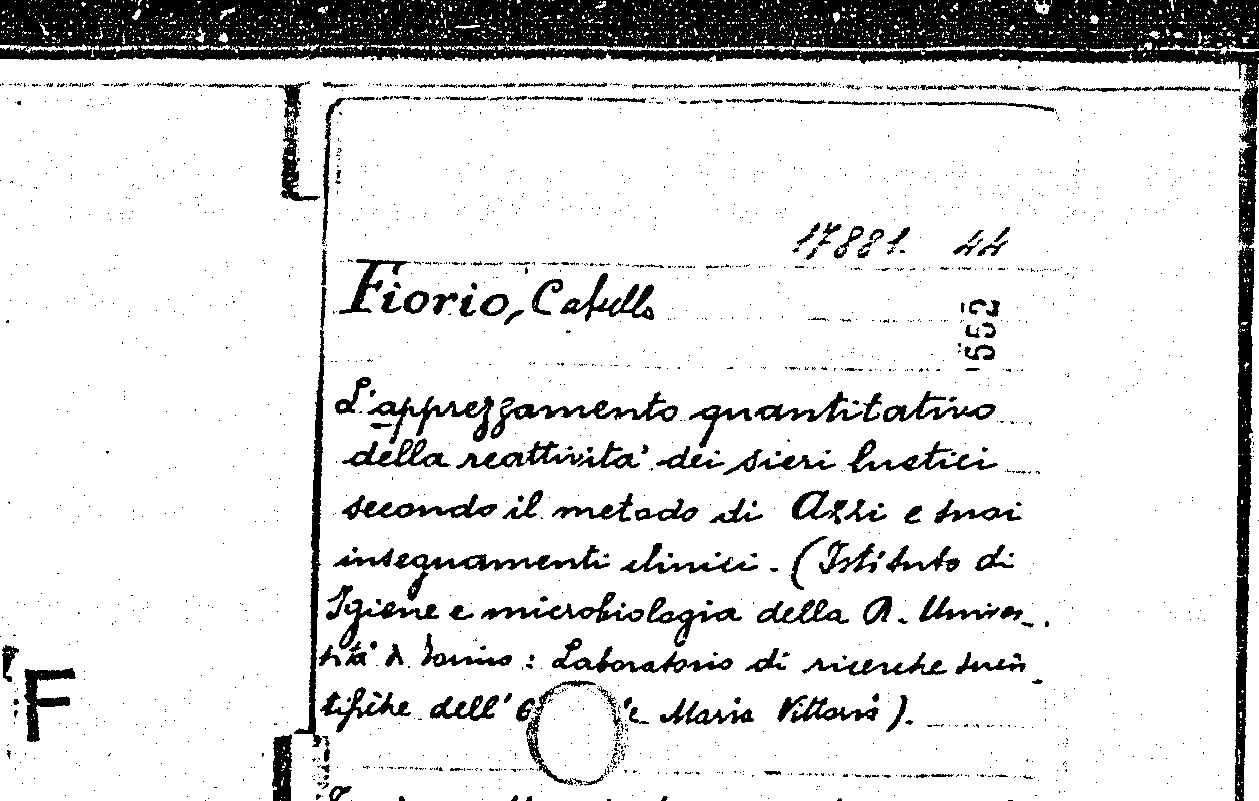 17881. 44
Fiorio, Catullo
552
L'apprezzamento quantitativo
della reattività dei sieri luetici
secondo il metodo di Azzi e suoi
insegnamenti clinici. (Istituto di
Igiene e microbiologia della R. Univer-
sità di Torino: Laboratorio di ricerche scien-
tifiche dell' Maria Vittoria).
F